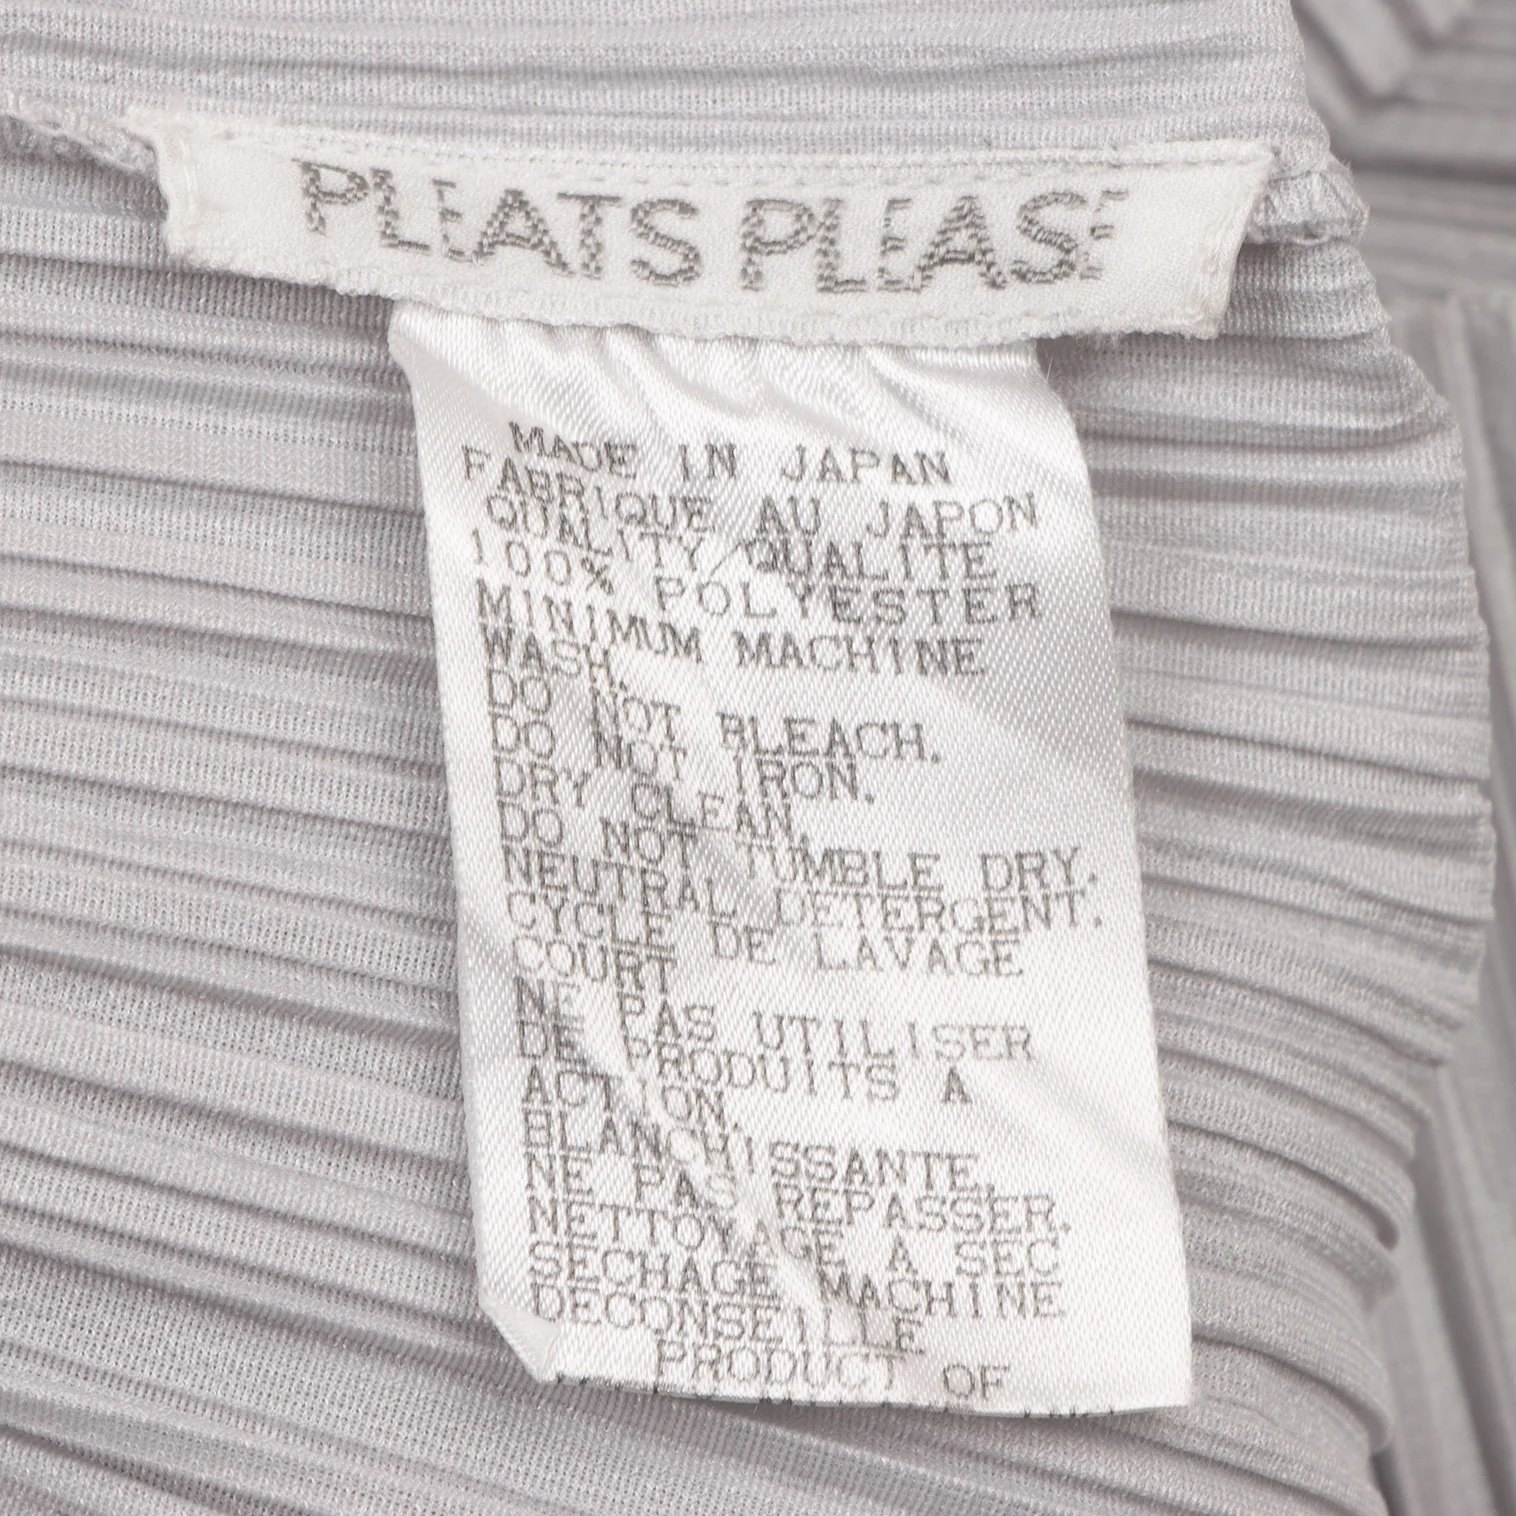 PLEATS PLEASE
MADE IN JAPAN
FABRIQUE AU JAPON
QUALITY/QUALITE
100% POLYESTER
MINIMUM MACHINE
WASH.
DO NOT BLEACH.
DO NOT IRON.
DRY CLEAN.
DO NOT TUMBLE DRY.
NEUTRAL DETERGENT.
CYCLE DE LAVAGE
COURT
NE PAS UTILISER
DE PRODUITS A
ACTION.
BLANCHISSANTE.
NE PAS REPASSER.
NETTOYAGE A SEC
SECHAGE MACHINE
DECONSEILLE
PRODUCT OF